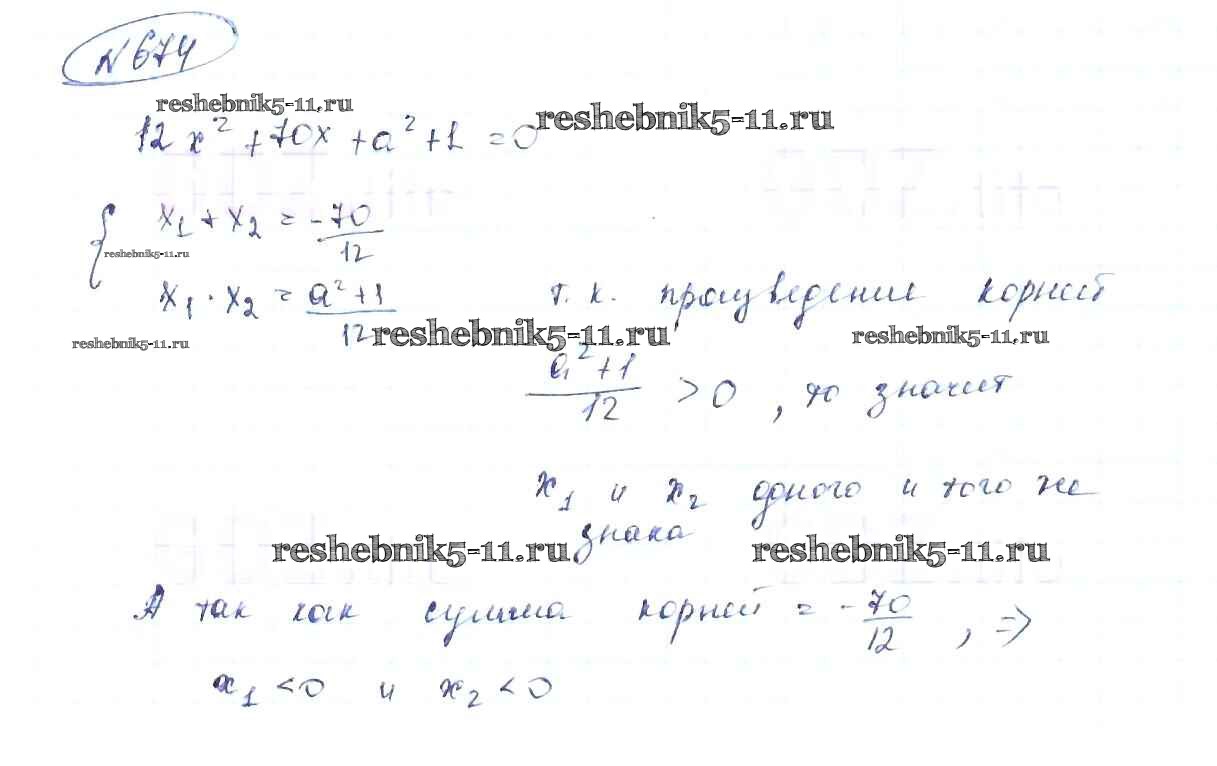 №674
reshebnik5-11.ru
reshebnik5-11.ru
12x² + 70x + a² + 1 = 0
x₁ + x₂ = -70/12
reshebnik5-11.ru
x₁ · x₂ = a² + 1/12
т.к. произведение корней
reshebnik5-11.ru
reshebnik5-11.ru
reshebnik5-11.ru
a² + 1/12 > 0, то значит
x₁ и x₂ одного и того же
знака
reshebnik5-11.ru
reshebnik5-11.ru
А так как сумма корней = -70/12, ⇒
x₁ < 0 и x₂ < 0